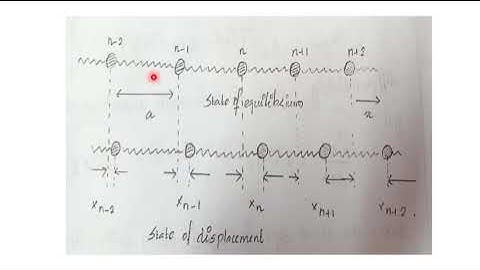 n-2 n-1 n n+1 n+2
State of equilibrium
a x
x n-2 x n-1 x n x n+1 x n+2 .
State of displacement